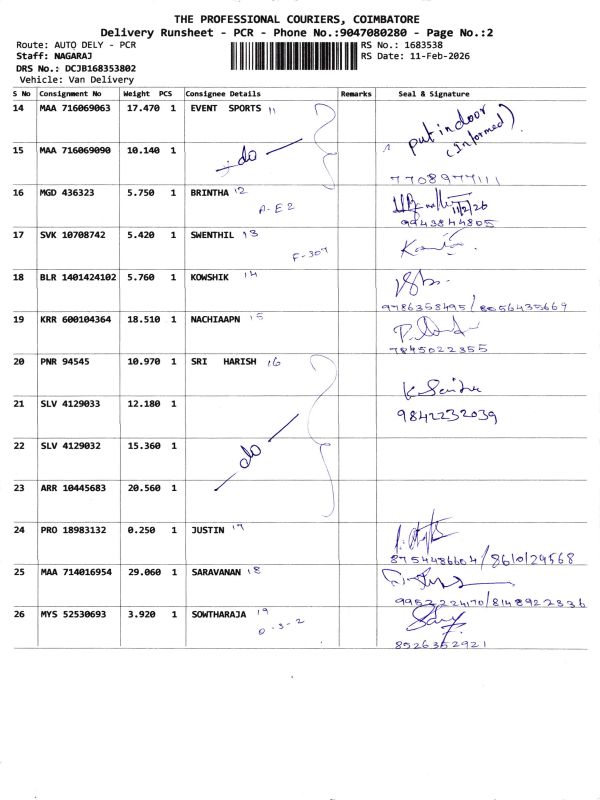 THE PROFESSIONAL COURIERS, COIMBATORE
Delivery Runsheet - PCR - Phone No.:9047080280 - Page No.:2
Route: AUTO DELY - PCR RS No.: 1683538
Staff: NAGARAJ RS Date: 11-Feb-2026
DRS No.: DCJB168353802
Vehicle: Van Delivery
S No Consignment No Weight PCS Consignee Details Remarks Seal & Signature
14 MAA 716069063 17.470 1 EVENT SPORTS 11 put indoor
(Informed).
15 MAA 716069090 10.140 1 do
7708977111
16 MGD 436323 5.750 1 BRINTHA 12
A-E2 11/2/26
9943844805
17 SVK 10708742 5.420 1 SWENTHIL 13
F-307
18 BLR 1401424102 5.760 1 KOWSHIK 14
9786358495/8056435669
19 KRR 600104364 18.510 1 NACHIAAPN 15
7845022355
20 PNR 94545 10.970 1 SRI HARISH 16
21 SLV 4129033 12.180 1 9842232039
22 SLV 4129032 15.360 1 do
23 ARR 10445683 20.560 1
24 PRO 18983132 0.250 1 JUSTIN 17
8754486604/8610129568
25 MAA 714016954 29.060 1 SARAVANAN 18
9952224170/8148922336
26 MYS 52530693 3.920 1 SOWTHARAJA 19
O-3-2
8526352921